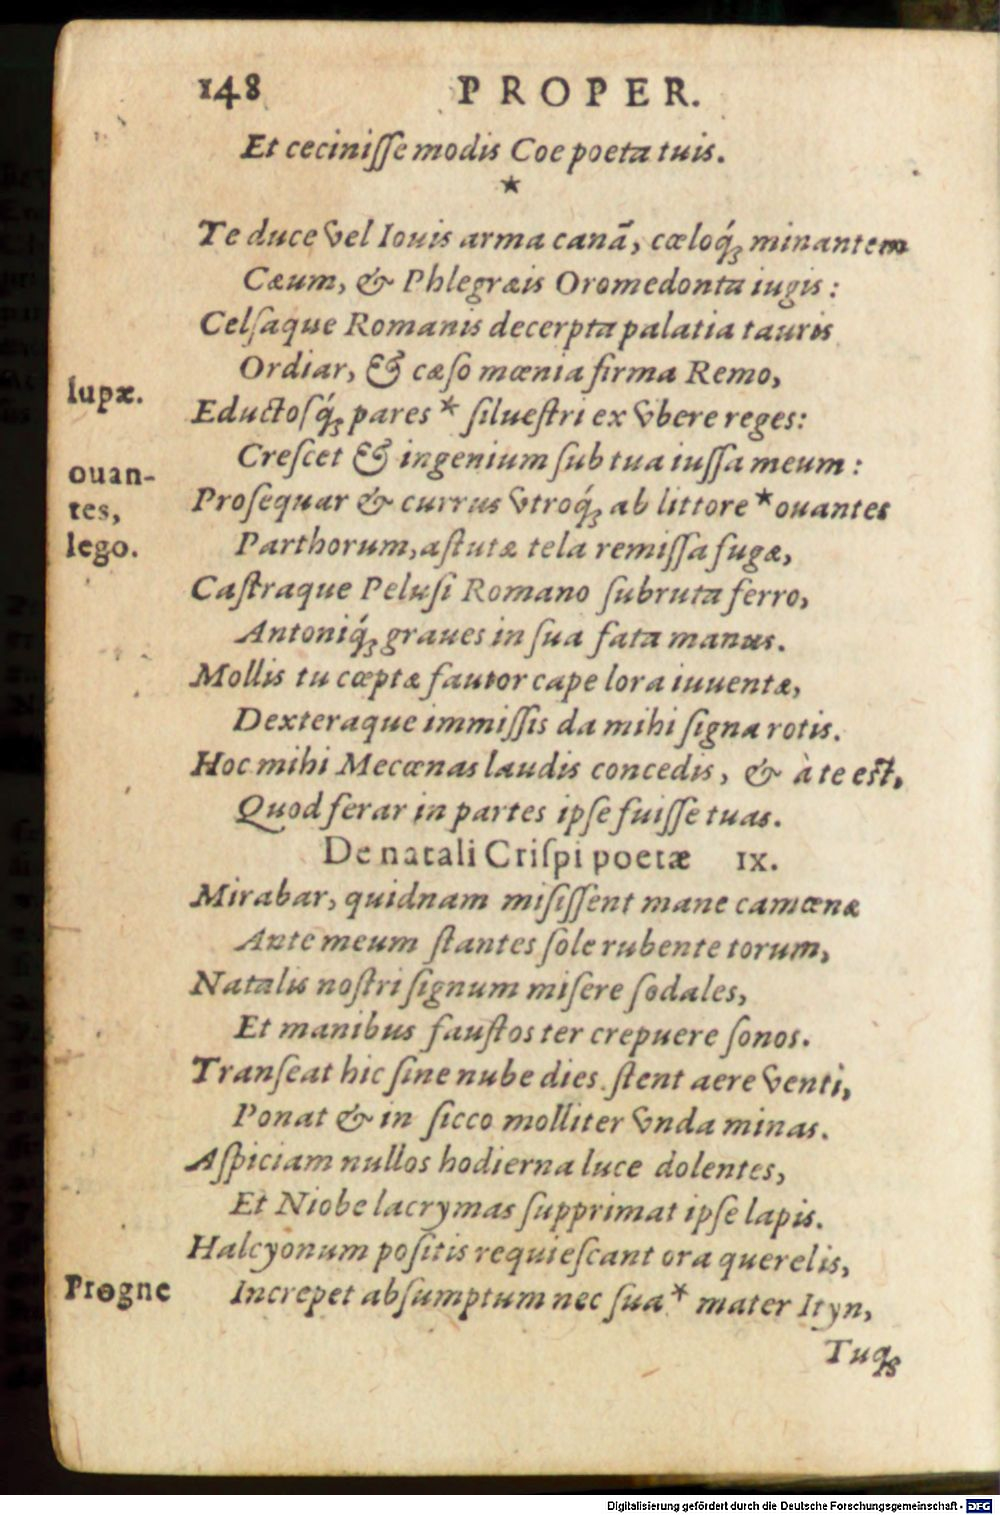 148 PROPER.
Et ceciniſſe modis Coe poeta tuis.
*
Te duce vel Iouis arma canã, cœloq́; minantem
Cæum, & Phlegræis Oromedonta iugis:
Celſaque Romanis decerpta palatia tauris
Ordiar, & cæſo mœnia firma Remo,
lupæ.
Eductoſq́; pares * ſilueſtri ex vbere reges:
Creſcet & ingenium ſub tua iuſſa meum:
ouan-
tes,
lego.
Proſequar & currus vtroq́; ab littore * ouantes
Parthorum, aſtutæ tela remiſſa fugæ,
Caſtraque Peluſi Romano ſubruta ferro,
Antoniq́; graues in ſua fata manus.
Mollis tu cœptæ fautor cape lora iuuentæ,
Dexteraque immiſſis da mihi ſigna rotis.
Hoc mihi Mecœnas laudis concedis, & à te eſt,
Quod ferar in partes ipſe fuiſſe tuas.
De natali Criſpi poetæ IX.
Mirabar, quidnam miſiſſent mane camœnæ
Ante meum ſtantes ſole rubente torum,
Natalis noſtri ſignum miſere ſodales,
Et manibus fauſtos ter crepuere ſonos.
Tranſeat hic ſine nube dies. ſtent aere venti,
Ponat & in ſicco molliter vnda minas.
Aſpiciam nullos hodierna luce dolentes,
Et Niobe lacrymas ſupprimat ipſe lapis.
Halcyonum poſitis requieſcant ora querelis,
Progne
Increpet abſumptum nec ſua * mater Ityn,
Tuq;
Digitalisierung gefördert durch die Deutsche Forschungsgemeinschaft - DFG